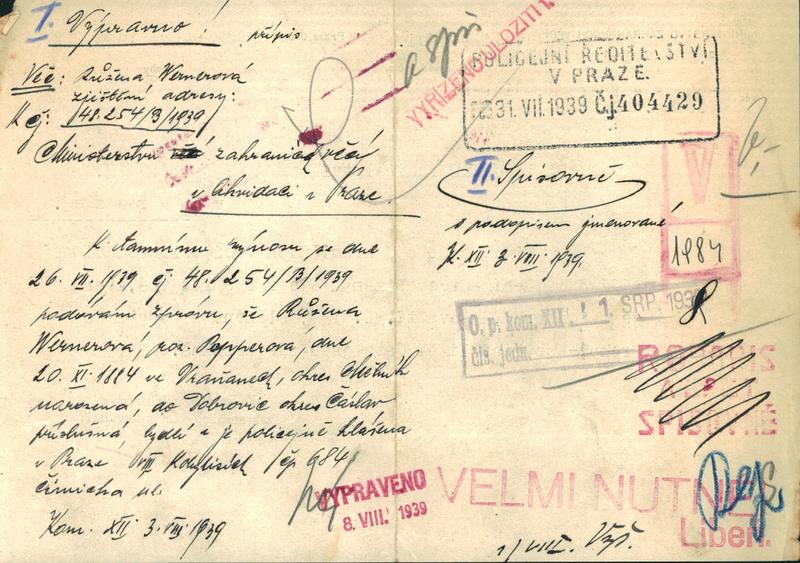 I. Výpravno!
přípis
Věc: Růžena Wernerová
zjištění adresy:
K čj: 48.254/B/1939
Ministerstvu zahraničních věcí
v likvidaci v Praze.
K tamnímu výnosu ze dne
26. VII. 1939 čj 48.254/B/1939
podávám zprávu, že Růžena
Wernerová, roz. Popperová, dne
20. XI. 1884 ve Vraňanech, okres Mělník
narozená, do Dobrovic okres Čáslav
příslušná, bydlí a je policejně hlášena
v Praze VIII Kobylisích čp 984
ul.
Kom. XII 3. VIII 1939
VYPRAVENO
8. VIII. 1939
a spis
VYŘÍZENO ULOŽITI
POLICEJNÍ ŘEDITELSTVÍ
V PRAZE.
31. VII. 1939 Čj 404429
II. Spisovně
s podopisem jmenované
K. XII 3. VIII 1939.
V
1984
O. p. kom. XII.
1. SRP. 1939
čís. jedn.
SPISOVNĚ
VELMI NUTNÉ
Libeň.